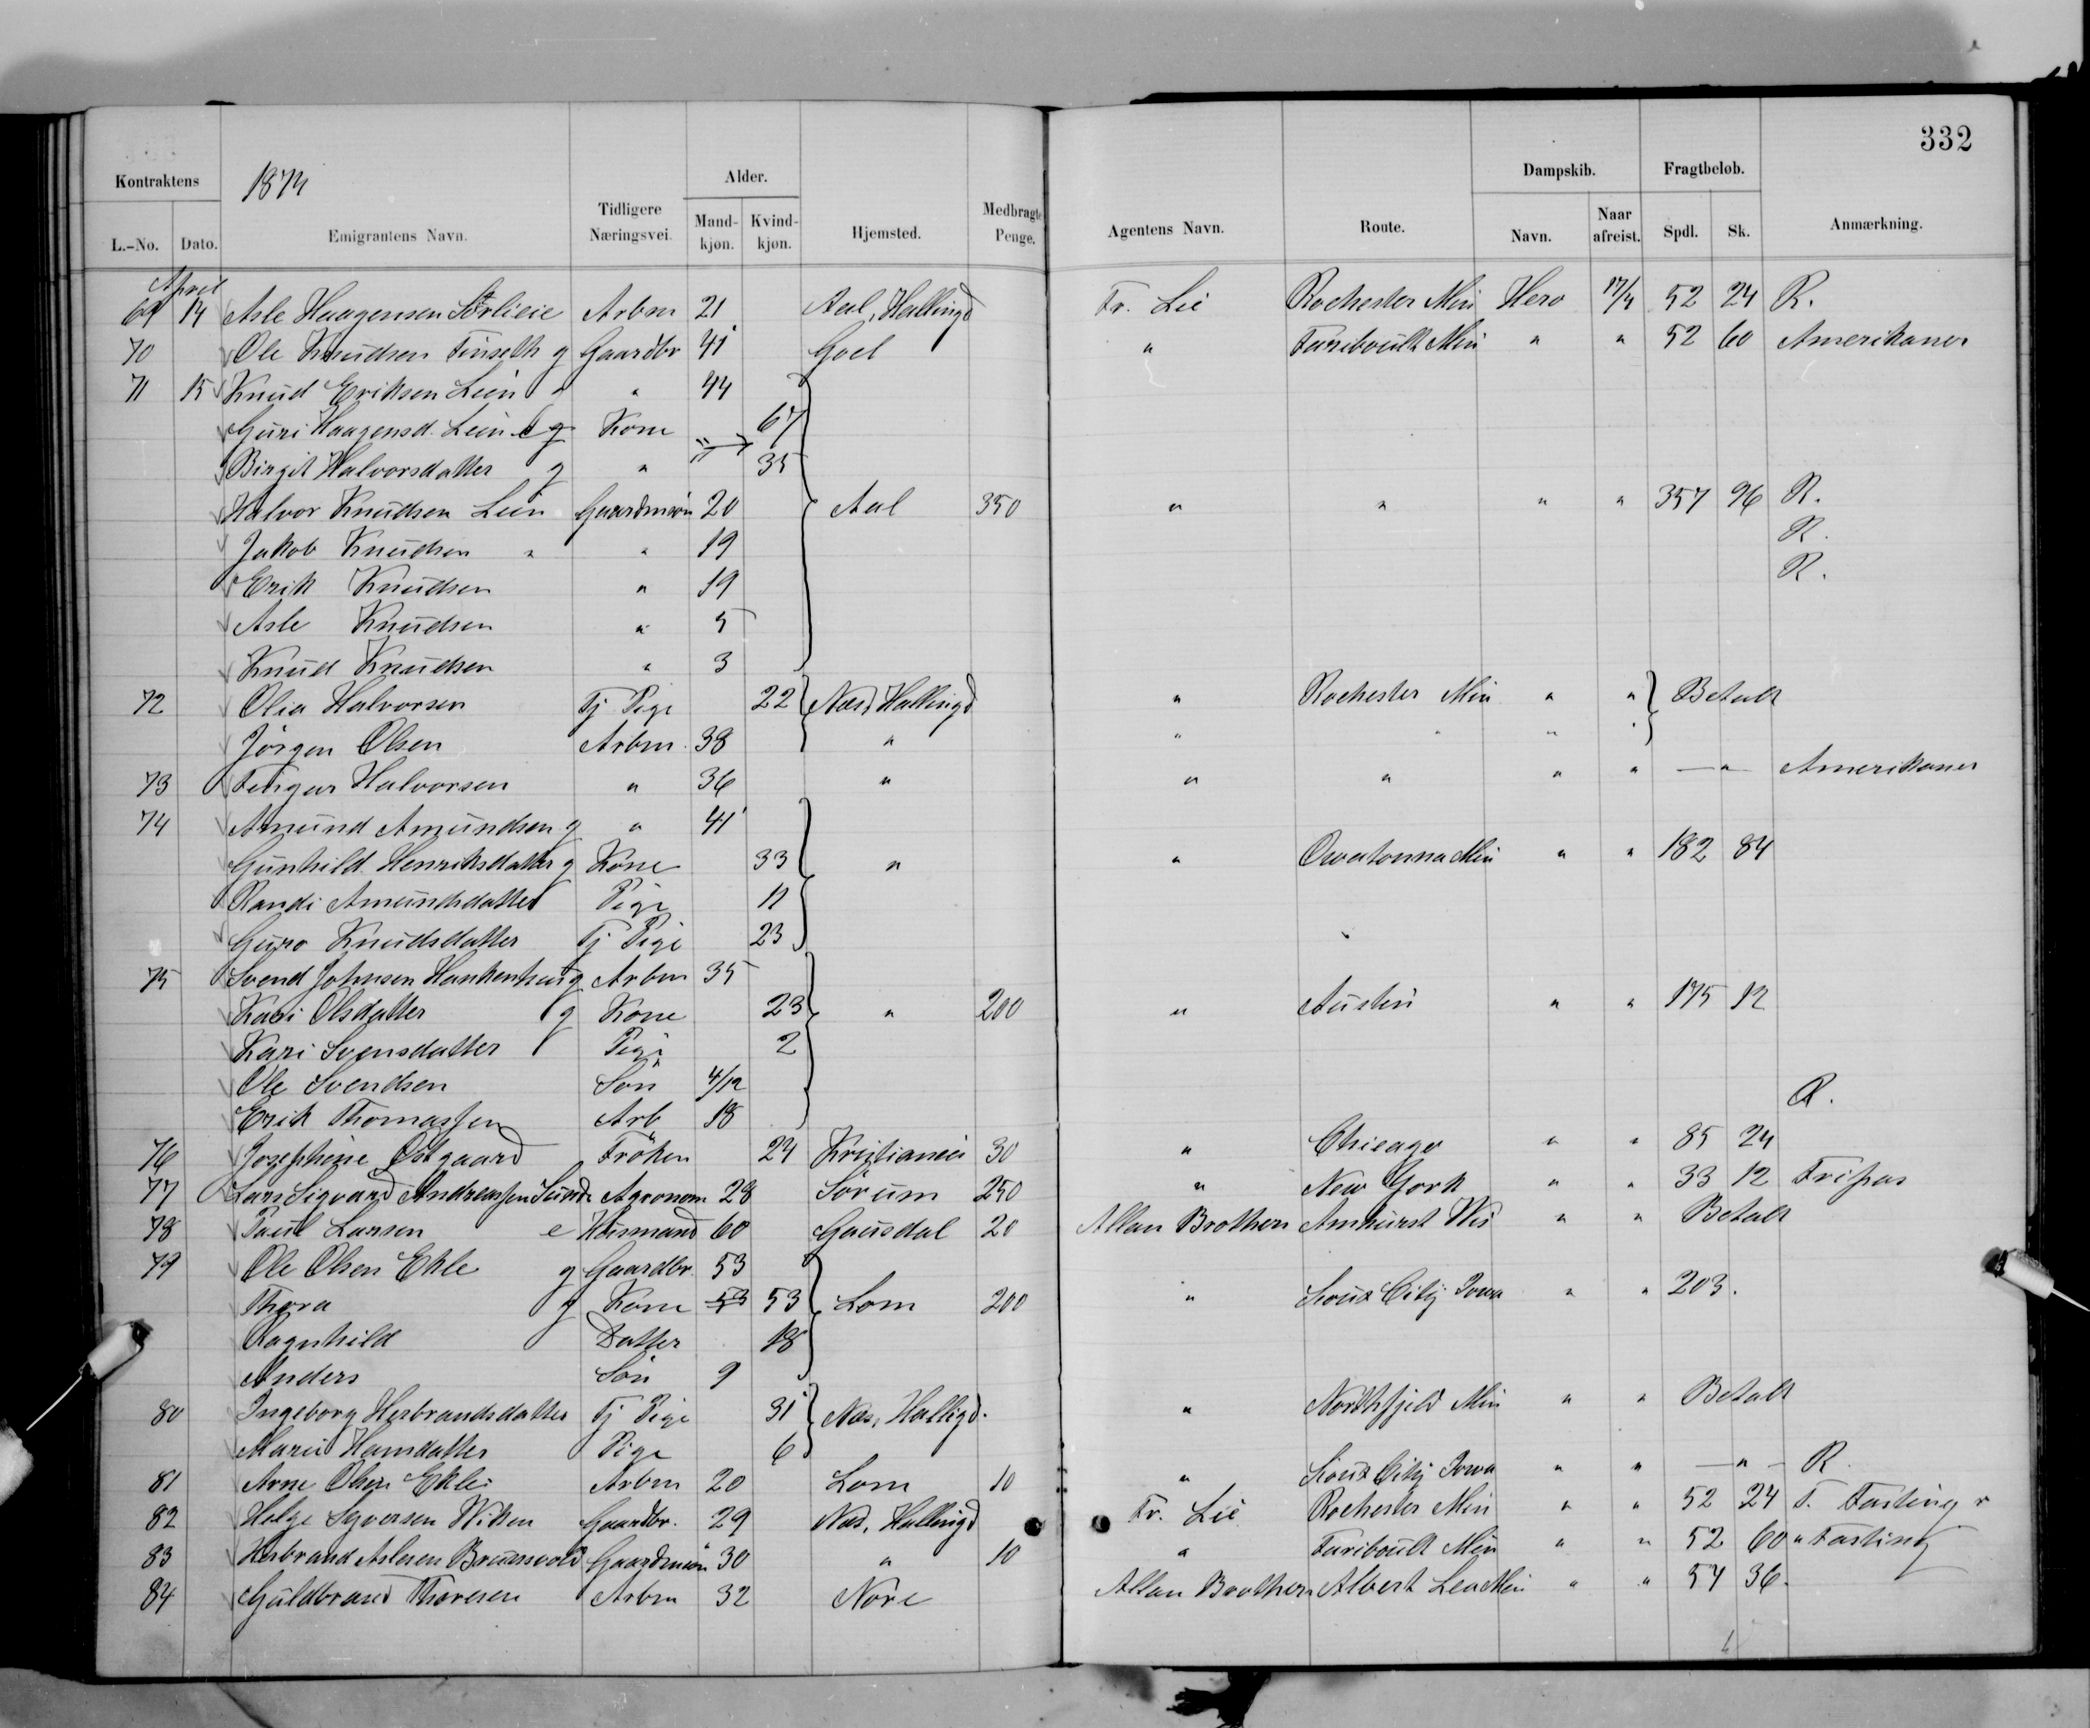 332
1874
Kontraktens Emigrantens Navn. Tidligere Næringsvei. Alder. Hjemsted. Medbragte Penge. Agentens Navn. Route. Dampskib. Fragtbeløb. Anmærkning.
L.-No. Dato. Mand-kjøn. Kvind-kjøn. Navn. Naar afreist. Spdl. Sk.
April
69 14 Asle Haagensen Sörlieie Arbm 21 Aal, Hallingd Fr. Lie Rochester Min Hero 17/4 52 24 R.
70 Ole Knudsen Tinseth g Gaardbr 41 Goel " Fariboult Min " " 52 60 Amerikaner
71 15 Knud Eriksen Lein " " 44
Guri Haagensd. Lein E g Kone 67
Birgit Halvorsdatter g " 35
Halvor Knudsen Lein Gaardmsön 20 Aal 350 " " " " 357 96 R.
Jakob Knudsen " " 19 R.
Erik Knudsen " 19 R.
Asle Knudsen " 5
Knud Knudsen " 3
72 Olia Halvorsen Tj Pige 22 Næs, Hallingd " Rochester Min " " Betalt
Jörgen Olsen Arbm. 38 " " " " "
73 Halvorsen " 36 " " " " " — " — Amerikaner
74 Amund Amundsen g " 41
Gunhild Henriksdatter g Kone 33 " " Owatonna Min " " 182 84
Randi Amundsdatter Pige 11
Guro Knudsdatter Tj Pige 23
75 Svend Johnsen g Arbm 35
Kari Olsdatter g Kone 23 " 200 " Austin " " 175 12
Kari Svensdatter Pige 2
Ole Svendsen Sön 4/12
Erik Thomassen Arb 18 R.
76 Josephine Östgaard Fröken 24 Kristiania 30 " Chicago " " 85 24
77 Lars Sigvard Andreassen Sunde Agronom 28 Sörum 250 " New York " " 33 12 Fripas
78 Paul Larsen e Husmand 60 Gausdal 20 Allan Brothers Amhurst Wis " " Betalt
79 Ole Olsen Ekle g Gaardbr. 53
Thora g Kone 53 53 Lom 200 " Sioux City Iowa " " 203.
Ragnhild Datter 18
Anders Sön 9
80 Ingeborg Herbrandsdatter Tj Pige 31 Næs, Hallingd. " Northfjeld Min " " Betalt
Marie Hansdatter Pige 6
81 Arne Olsen Ekle Arbm 20 Lom 10 " Sioux City Iowa " " — " — R.
82 Helge Syversen Wiken Gaardbr. 29 Næs, Hallingd Fr. Lie Rochester Min " " 52 24 T. Fasting
83 Herbrand Aslesen Gaardmsön 30 " 10 " Fariboult Min " " 52 60 " Fasting
84 Guldbrand Thoresen Arbm 32 Nore Allan Brothers Albert Lea Min " " 54 36.